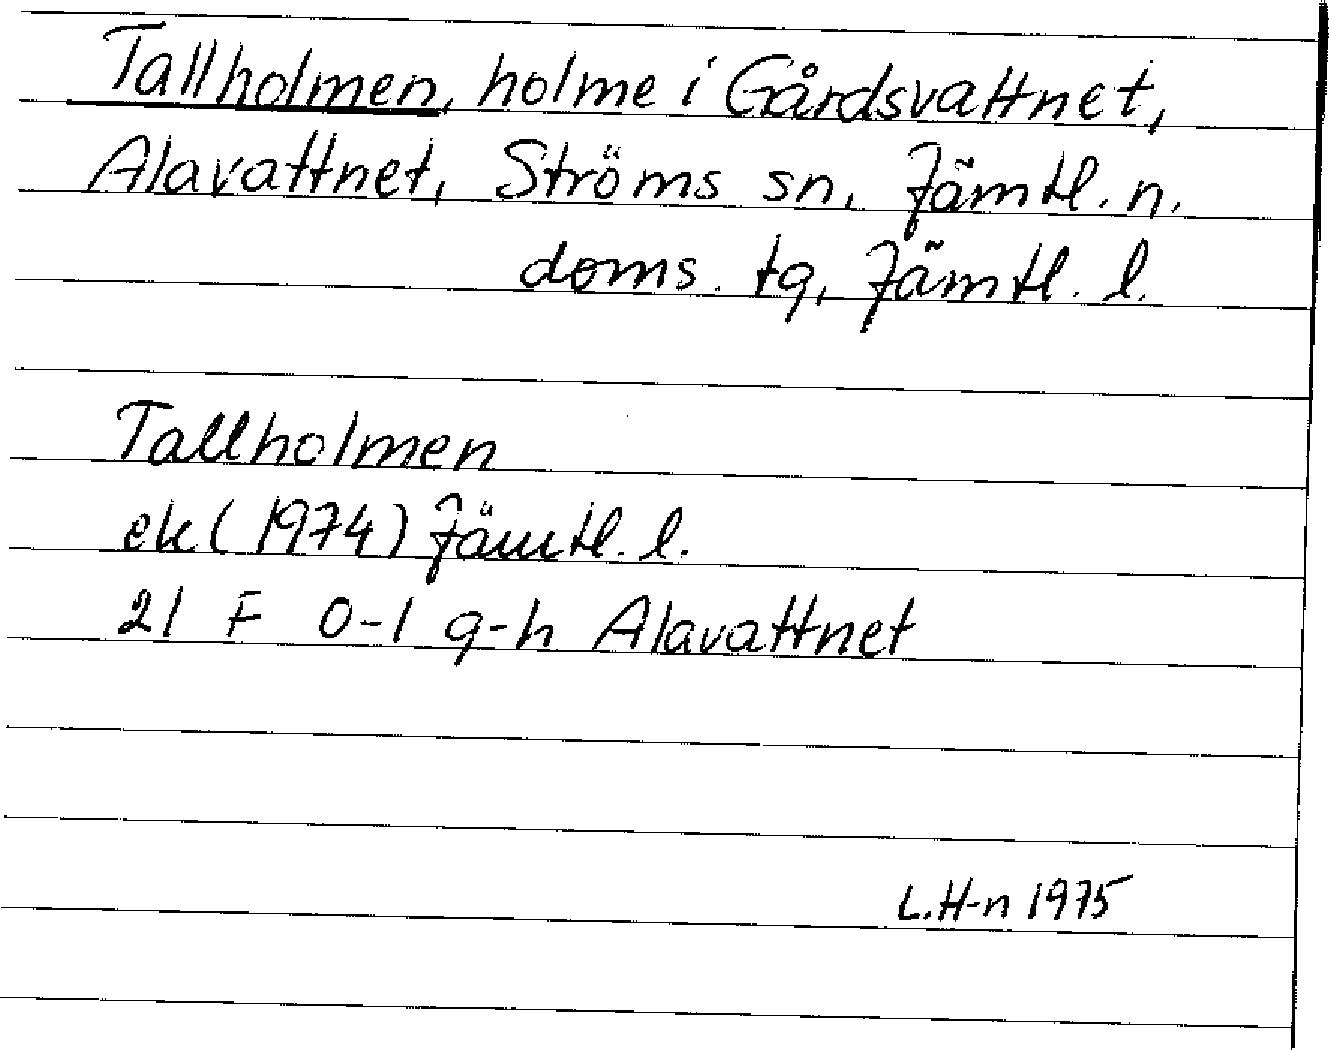 Tallholmen, holme i Gårdsvattnet,
Alavattnet, Ströms sn, Jämtl. n.
doms. tg, Jämtl. l.
Tallholmen
ek (1974) Jämtl. l.
21 F 0-1 g-h Alavattnet
L.H-n 1975